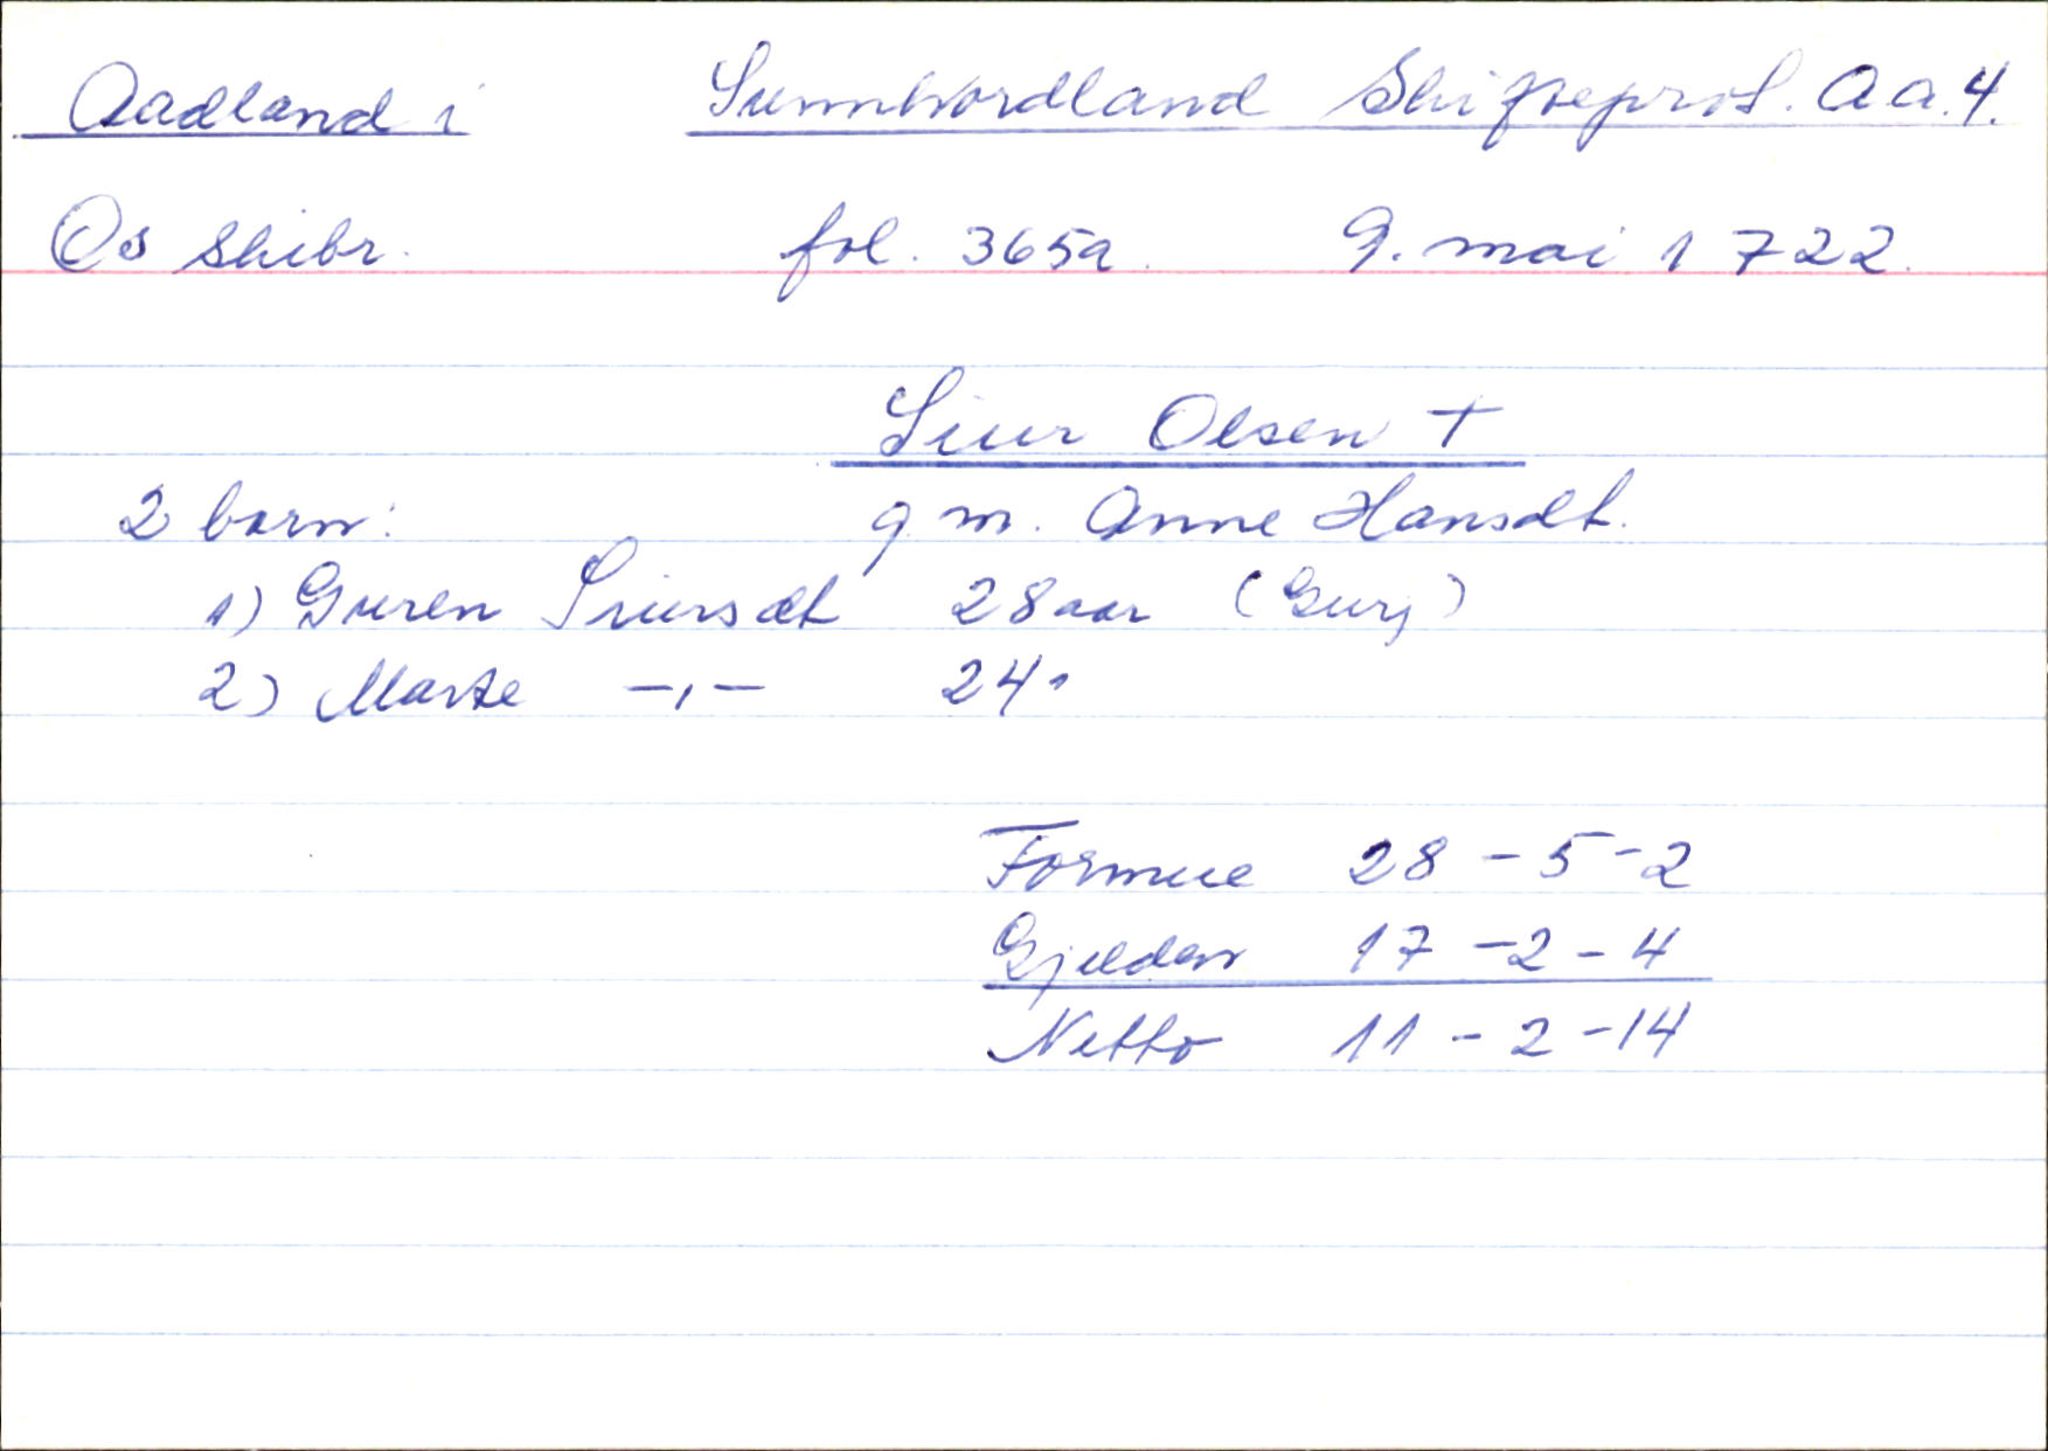 Aadland i Sunnhordland Skifteprot. Aa.4.
Os skibr. fol. 365a. 9. mai 1722.
Siur Olsen +
2 barn: g. m. Anne Hansdt.
1) Guren Siursdt 28 aar (Gurj)
2) Marte -,- 24 "
Formue 28 - 5 - 2
Gjelden 17 - 2 - 4
Netto 11 - 2 - 14